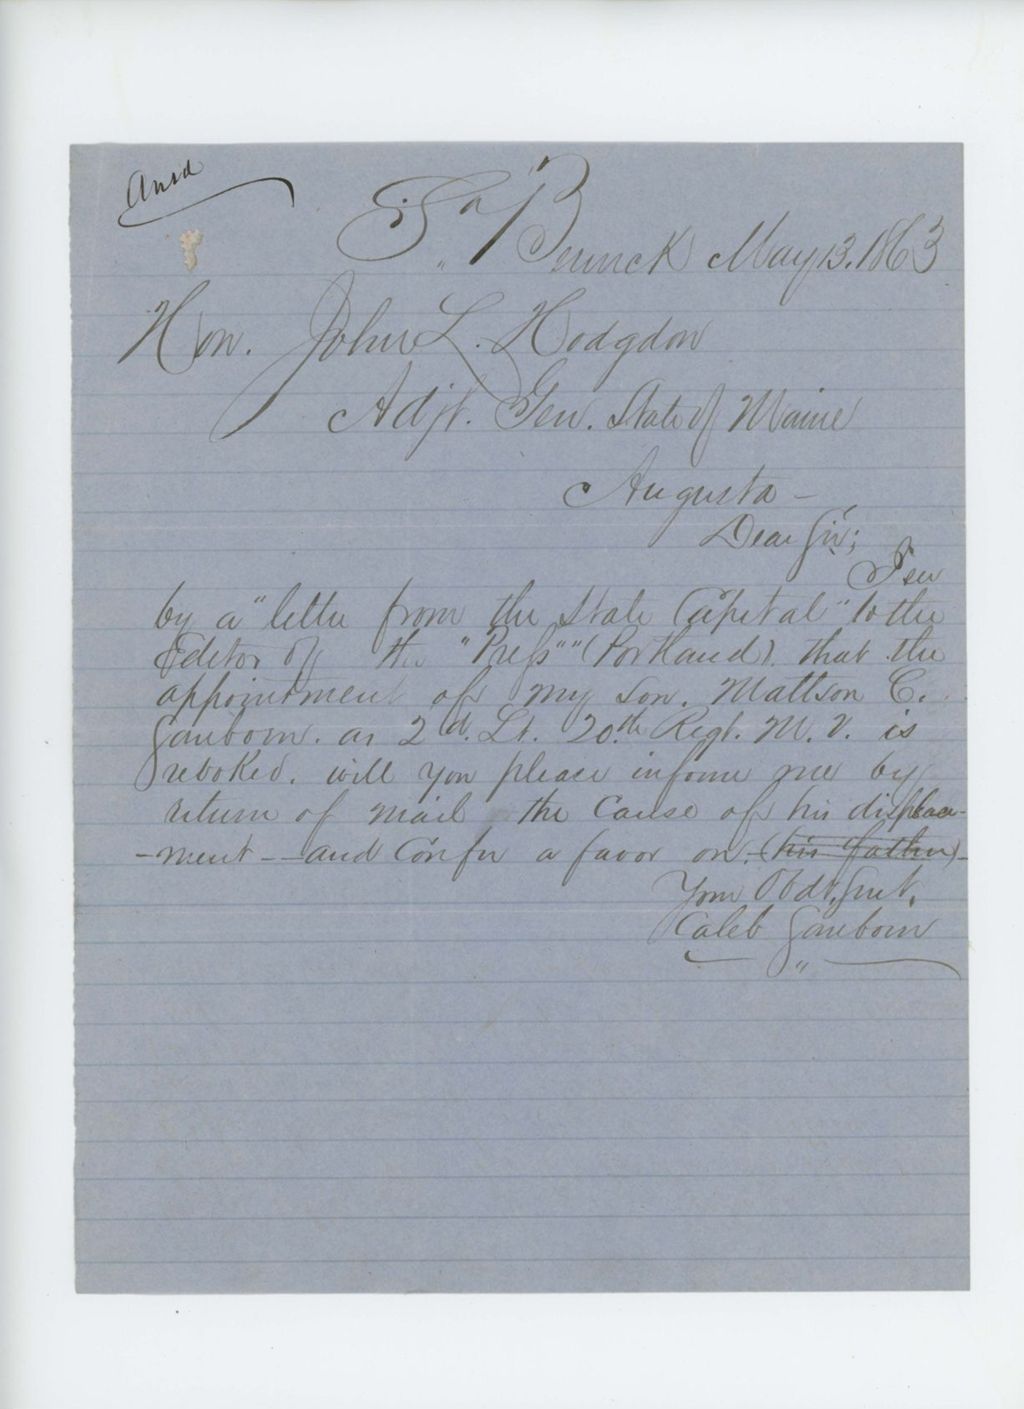 Ansd
So. Berwick May 13. 1863
Hon. John L. Hodgdon
Adjt. Gen. State of Maine
Augusta -
Dear Sir;
I see
by a "letter from the State Capital" to the
Editor of the "Press" (Portland). that the
appointment of my son. Mattson C.
Sanborn. as 2d. Lt. 20th Regt. M. V. is
revoked. will you please inform me by
return of mail, the Cause of his displace-
-ment - and Confer a favor on. (his father)-
Your Obdt. Svt.
Caleb Sanborn